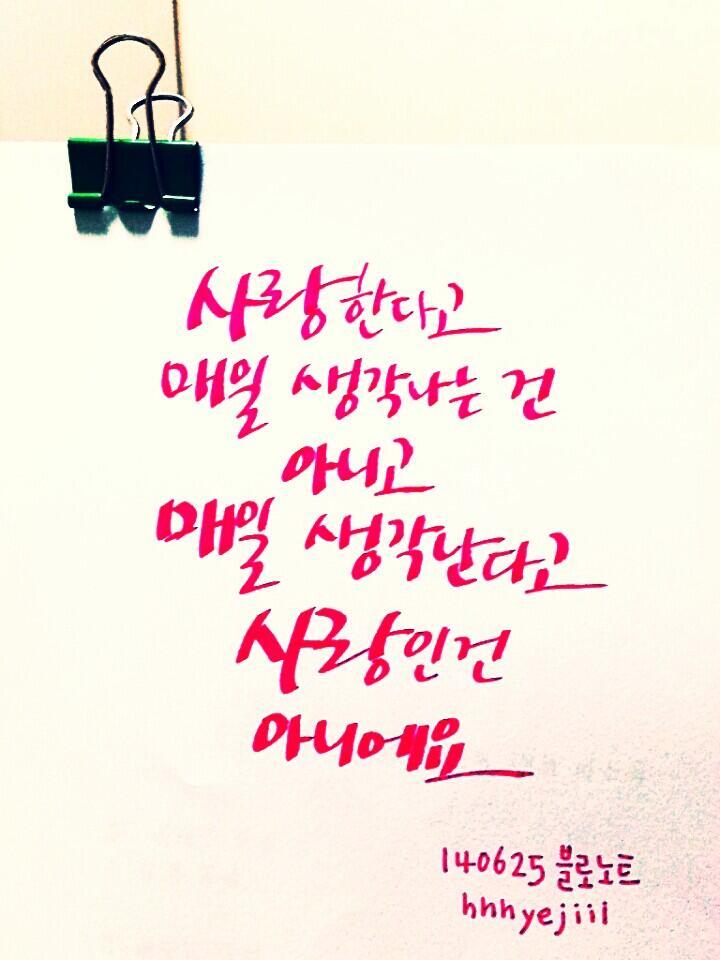 사랑한다고
매일 생각나는 건
아니고
매일 생각난다고
사랑인건
아니에요
140625 블로노트
hhhyejiii